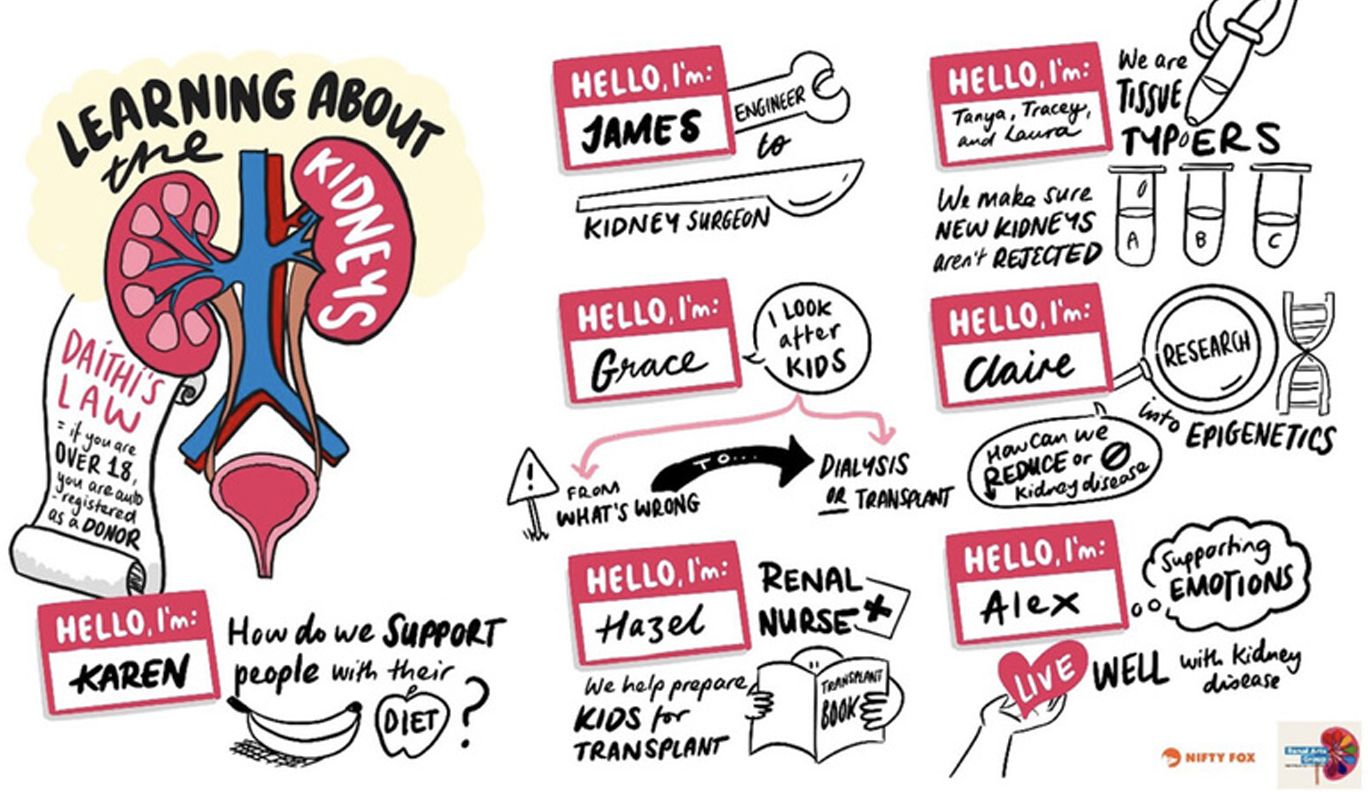 LEARNING ABOUT
the
KIDNEYS
DAITHI'S
LAW
= if you are
OVER 18,
you are auto
-registered
as a DONOR
HELLO, I'm:
KAREN
How do we SUPPORT
people with their
DIET ?
HELLO, I'm:
JAMES
ENGINEER
to
KIDNEY SURGEON
HELLO, I'm:
Grace
I LOOK
after
KIDS
FROM
WHAT'S WRONG
TO...
DIALYSIS
OR TRANSPLANT
HELLO, I'm:
Hazel
RENAL
NURSE
We help prepare
KIDS for
TRANSPLANT
TRANSPLANT
BOOK
HELLO, I'm:
Tanya, Tracey,
and Laura
We are
TISSUE
TYPERS
We make sure
NEW KIDNEYS
aren't REJECTED
A B C
HELLO, I'm:
Claire
RESEARCH
into EPIGENETICS
How can we
REDUCE or
kidney disease
HELLO, I'm:
Alex
Supporting
EMOTIONS
LIVE WELL with kidney
disease
NIFTY FOX
Renal Arts
Group